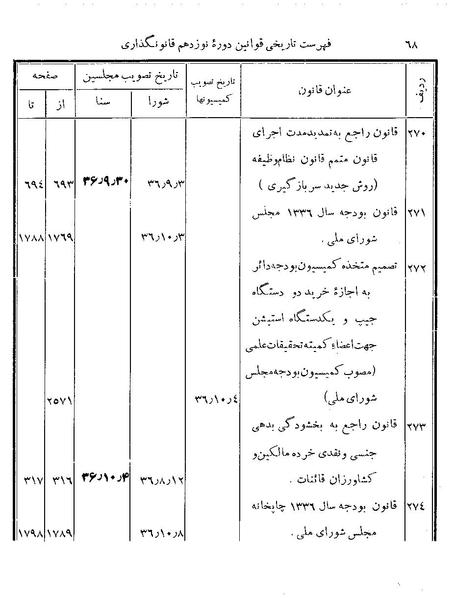 ۶۸ فهرست تاریخی قوانین دورهٔ نوزدهم قانونگذاری
ردیف عنوان قانون تاریخ تصویب کمیسیونها تاریخ تصویب مجلسین صفحه
شورا سنا از تا
۲۷۰ قانون راجع به تمدید مدت اجرای
قانون متمم قانون نظام وظیفه
(روش جدید سربازگیری) ۳۶٫۹٫۳ ۳۶٫۹٫۳۰ ۶۹۳ ۶۹۴
۲۷۱ قانون بودجه سال ۱۳۳۶ مجلس
شورای ملی . ۳۶٫۱۰٫۳ ۱۷۶۹ ۱۷۸۸
۲۷۲ تصمیم متخذه کمیسیون بودجه دائر
به اجازهٔ خرید دو دستگاه
جیپ و یکدستگاه استیشن
جهت اعضاء کمیته تحقیقات علمی
(مصوب کمیسیون بودجه مجلس
شورای ملی) ۳۶٫۱۰٫۴ ۲۵۷۱
۲۷۳ قانون راجع به بخشودگی بدهی
جنسی و نقدی خرده مالکین و
کشاورزان قائنات . ۳۶٫۸٫۱۲ ۳۶٫۱۰٫۴ ۳۱۶ ۳۱۷
۲۷۴ قانون بودجه سال ۱۳۳۶ چاپخانه
مجلس شورای ملی . ۳۶٫۱۰٫۸ ۱۷۸۹ ۱۷۹۸